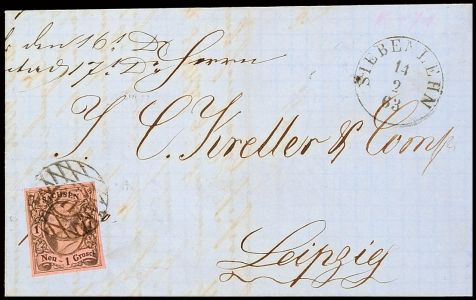 den 16t D
17t D
Herrn
SIEBENLEHN
14
2
63
J. C. Kreller & Comp
SACHSEN
1
Neu - 1 Grosch
Leipzig